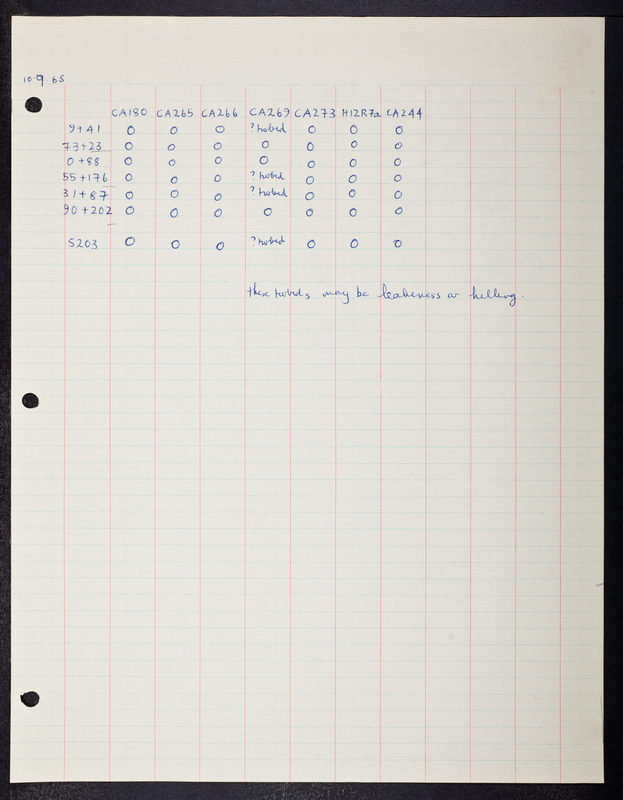 10.9.65
CA180 CA265 CA266 CA269 CA273 H12R7a CA244
9+41 0 0 0 ? turbid 0 0 0
73+23 0 0 0 0 0 0 0
0+88 0 0 0 0 0 0 0
55+176 0 0 0 ? turbid 0 0 0
31+87 0 0 0 ? turbid 0 0 0
90+202 0 0 0 0 0 0 0
S203 0 0 0 ? turbid 0 0 0
these turbids may be leakiness or killing.